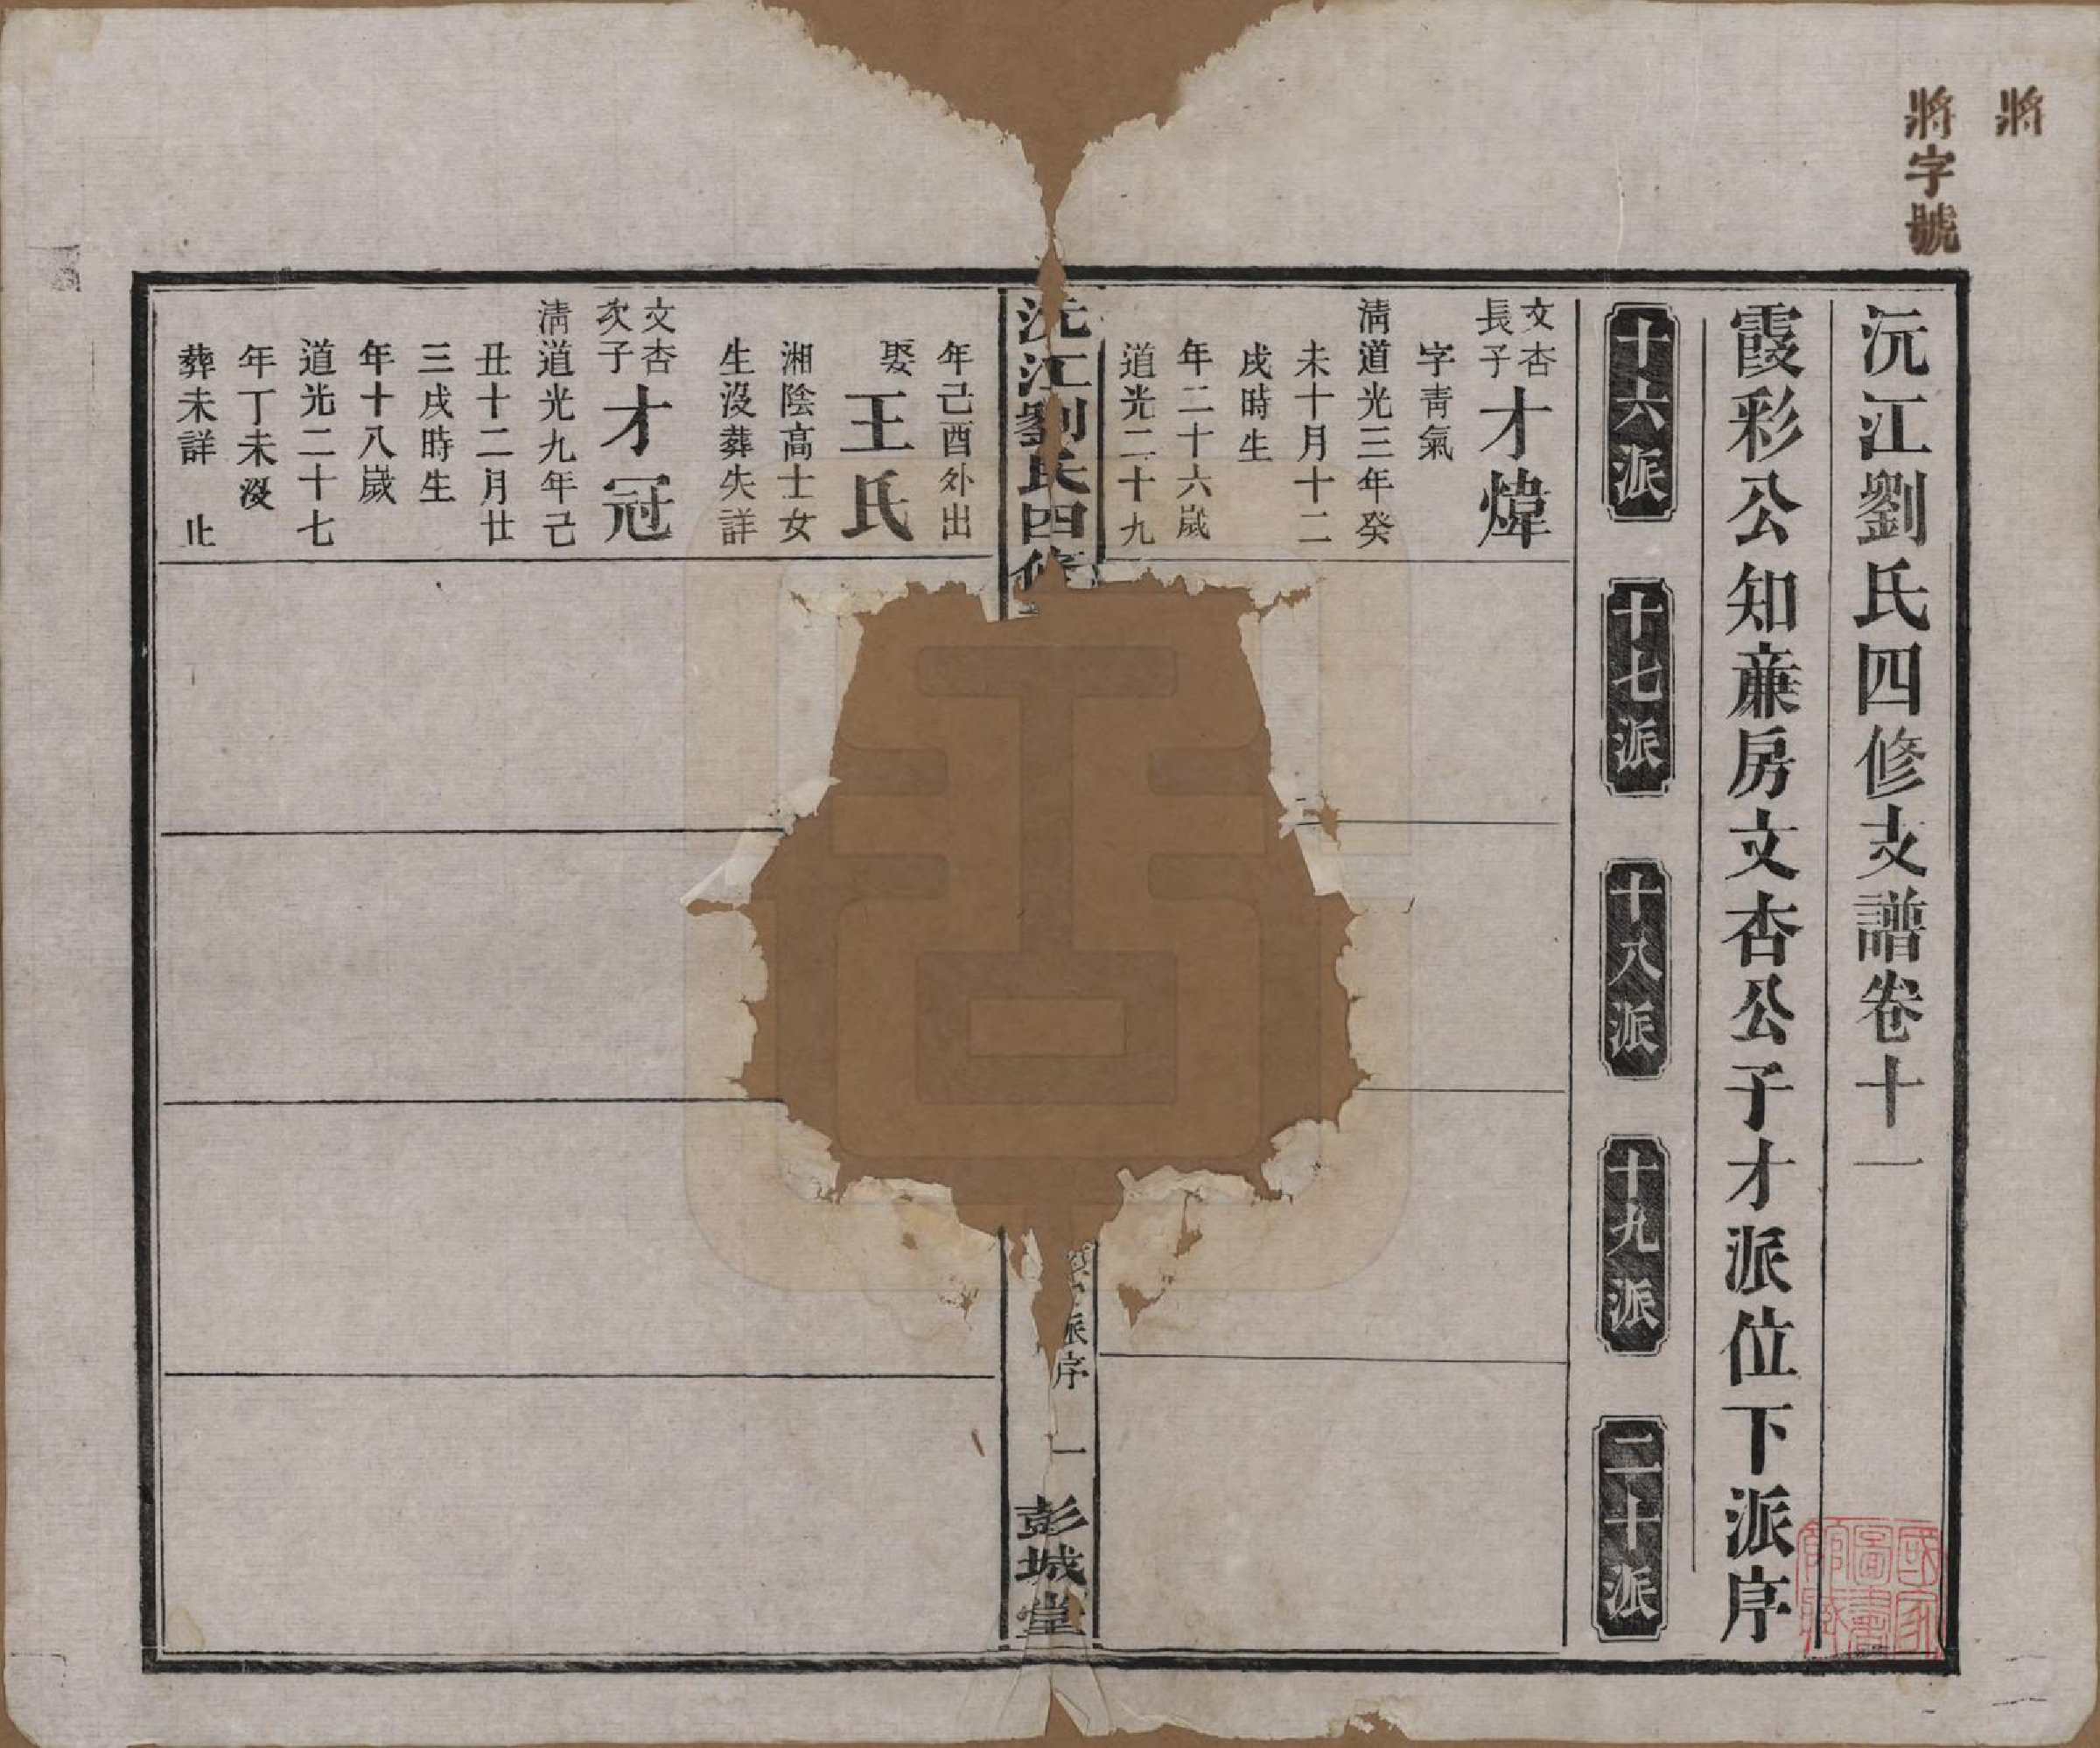 將
將字號
沅江劉氏四修支譜卷十一
霞彩公知亷房文杏公子才派位下派序
十六派
十七派
十八派
十九派
二十派
文杏
長子
才煒
字青氣
清道光三年癸
未十月十二
戌時生
年二十六歲
道光二十九
沅江劉氏四修
派序
一
彭城堂
年己酉外出
娶
王氏
湘陰高士女
生沒葬失詳
文杏
次子
才冠
清道光九年己
丑十二月廿
三戌時生
年十八歲
道光二十七
年丁未沒
葬未詳 止
國家
圖書
館藏